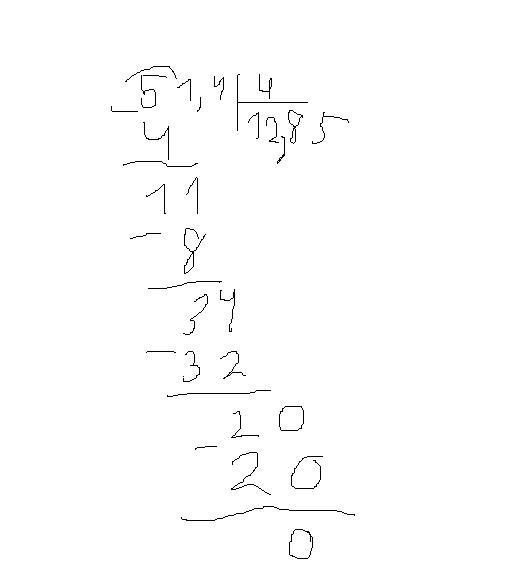 51,4 4
4 12,85
11
- 8
34
- 32
20
- 20
0